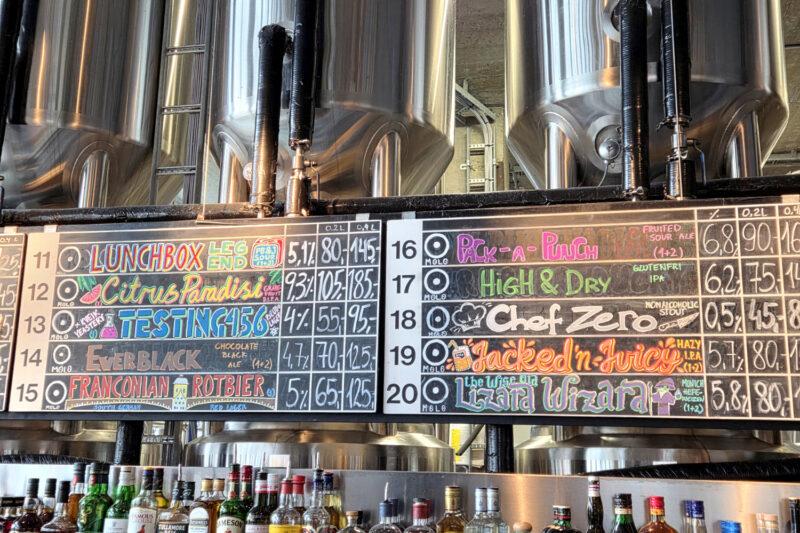 0,4 L
11 MOLO LUNCHBOX LEGEND PB&J SOUR (1+2) 5,1% 80,- 145,-
12 MOLO Citrus Paradisi GRAPEFRUIT D.I.P.A. 9,3% 105,- 185,-
13 MOLO TESTING456 4% 55,- 95,-
14 MOLO EVERBLACK CHOCOLATE BLACK ALE (1+2) 4,7% 70,- 125,-
15 MOLO FRANCONIAN ROTBIER SOUTH GERMAN RED LAGER 5% 65,- 125,-
0,2L 0,4L
16 MOLO PACK-A-PUNCH FRUITED SOUR ALE (1+2) 6,8% 90,-
17 MOLO HIGH & DRY GLUTENFRI IPA 6,2% 75,-
18 MOLO Chef Zero NONALCOHOLIC STOUT 0,5% 45,-
19 MOLO Jacked 'n Juicy HAZY I.P.A. (1+2) 5,7% 80,-
20 MOLO the Wise Old Lizard Wizard MUNICH (1+2) 5,8% 80,-
FAMOUS
TULLAMORE
JAMESON